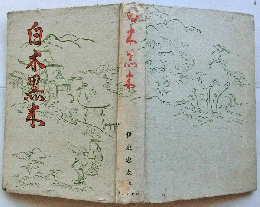 白木黒木
白木黒木
伊東忠太